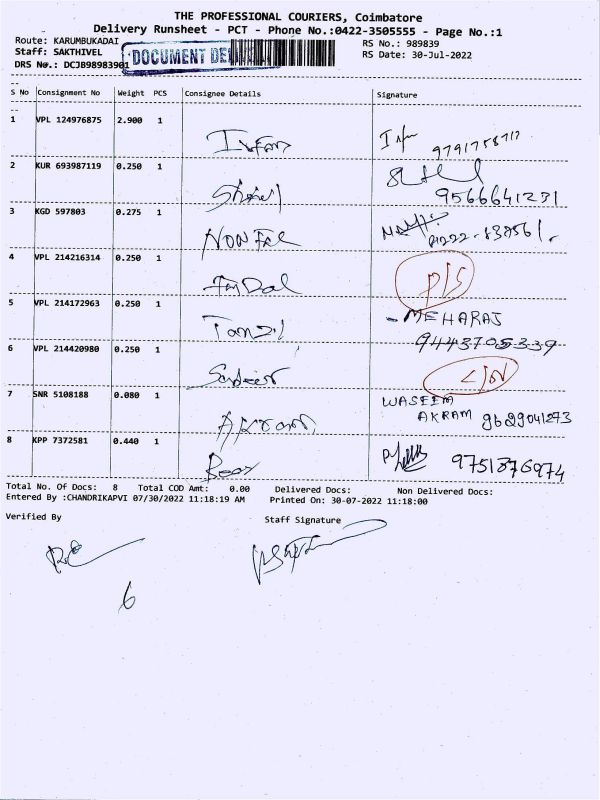 THE PROFESSIONAL COURIERS, Coimbatore
Delivery Runsheet - PCT - Phone No.:0422-3505555 - Page No.:1
Route: KARUMBUKADAI RS No.: 989839
Staff: SAKTHIVEL RS Date: 30-Jul-2022
DOCUMENT
DRS No.: DCJ698983901
S No Consignment No Weight PCS Consignee Details Signature
1 VPL 124976875 2.900 1
Irfan
2 KUR 693987119 0.250 1
9566641231
3 KGD 597803 0.275 1
NOWFAL
4 VPL 214216314 0.250 1
5 VPL 214172963 0.250 1
Tamzil MEHARAJ
9443705339
6 VPL 214420980 0.250 1
7 SNR 5108188 0.080 1 WASEEM
Akram AKRAM 9629041273
8 KPP 7372581 0.440 1
9751876974
Total No. Of Docs: 8 Total COD Amt: 0.00 Delivered Docs: Non Delivered Docs:
Entered By :CHANDRIKAPVI 07/30/2022 11:18:19 AM Printed On: 30-07-2022 11:18:00
Verified By Staff Signature
6